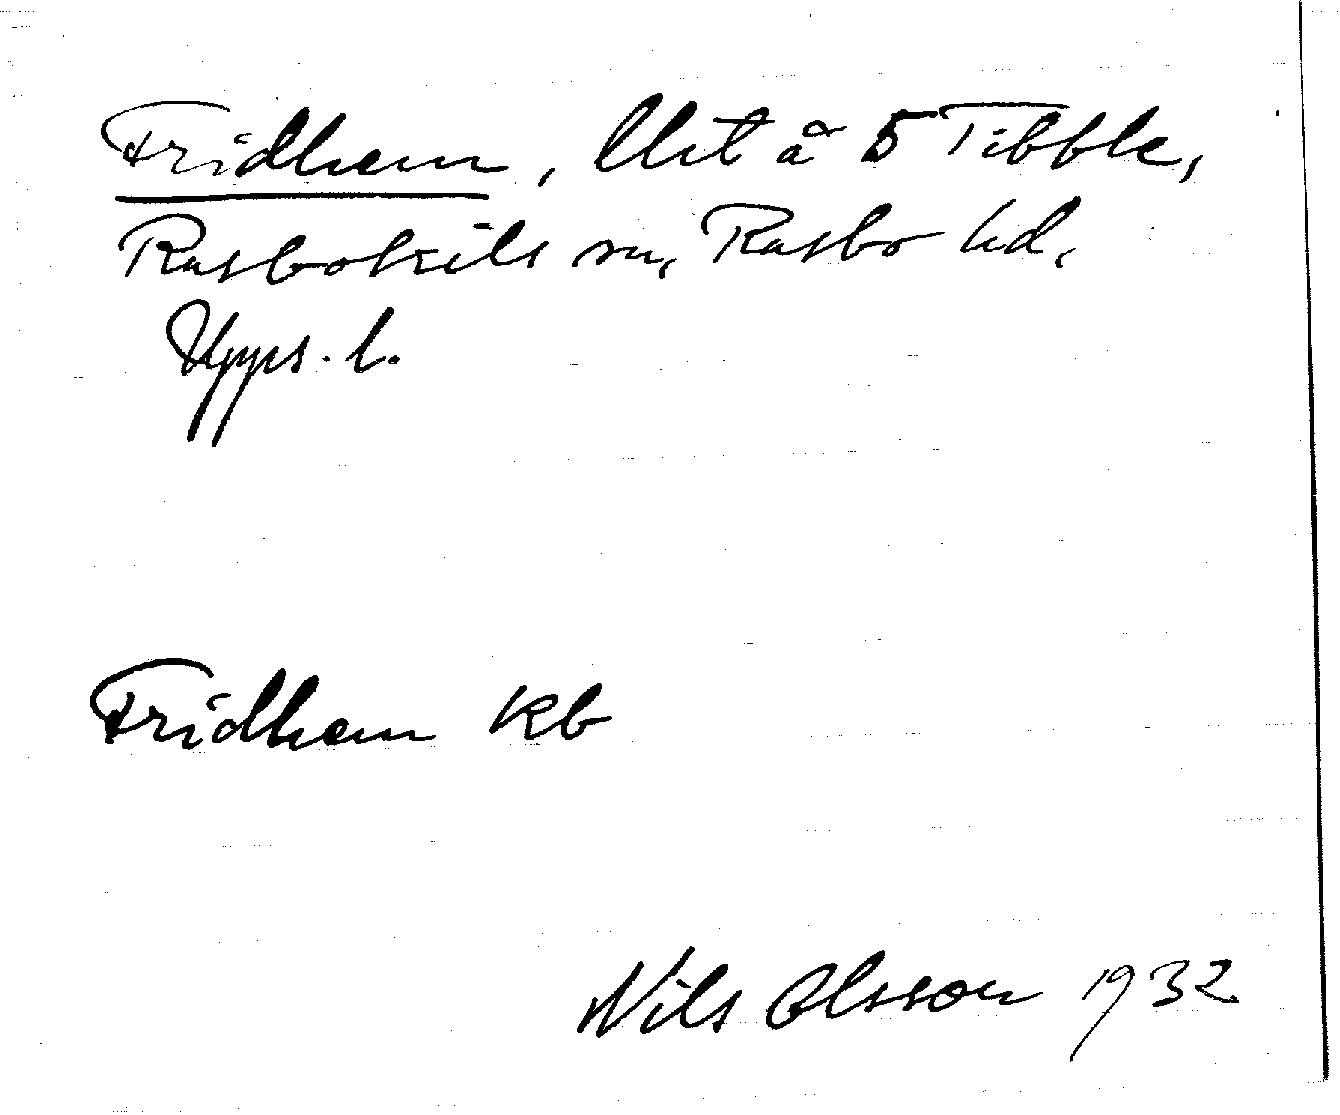 Fridhem, lht å 5 Tibble,
Rasbokils sn, Rasbo hd,
Upps. l.
Fridhem kb
Nils Olsson 1932